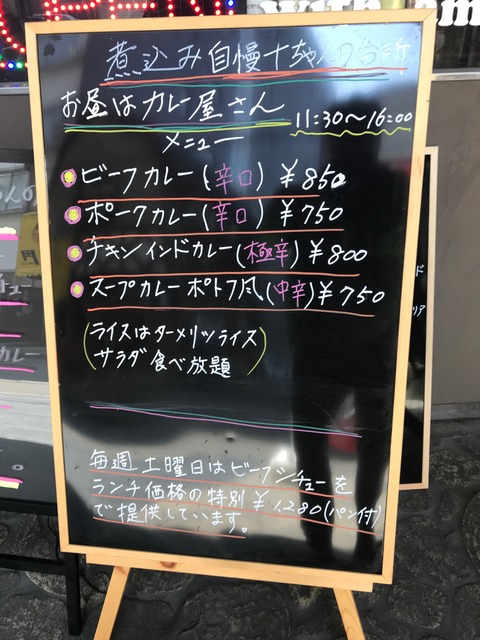 煮込み自慢十ちゃんの台所
お昼はカレー屋さん
11:30〜16:00
メニュー
ビーフカレー(辛口) ¥850
ポークカレー(辛口) ¥750
チキンインドカレー(極辛) ¥800
スープカレーポトフ風(中辛) ¥750
(ライスはターメリツライス
サラダ食べ放題)
毎週土曜日はビーフシチューを
ランチ価格の特別¥1,280(パン付)
で提供しています。